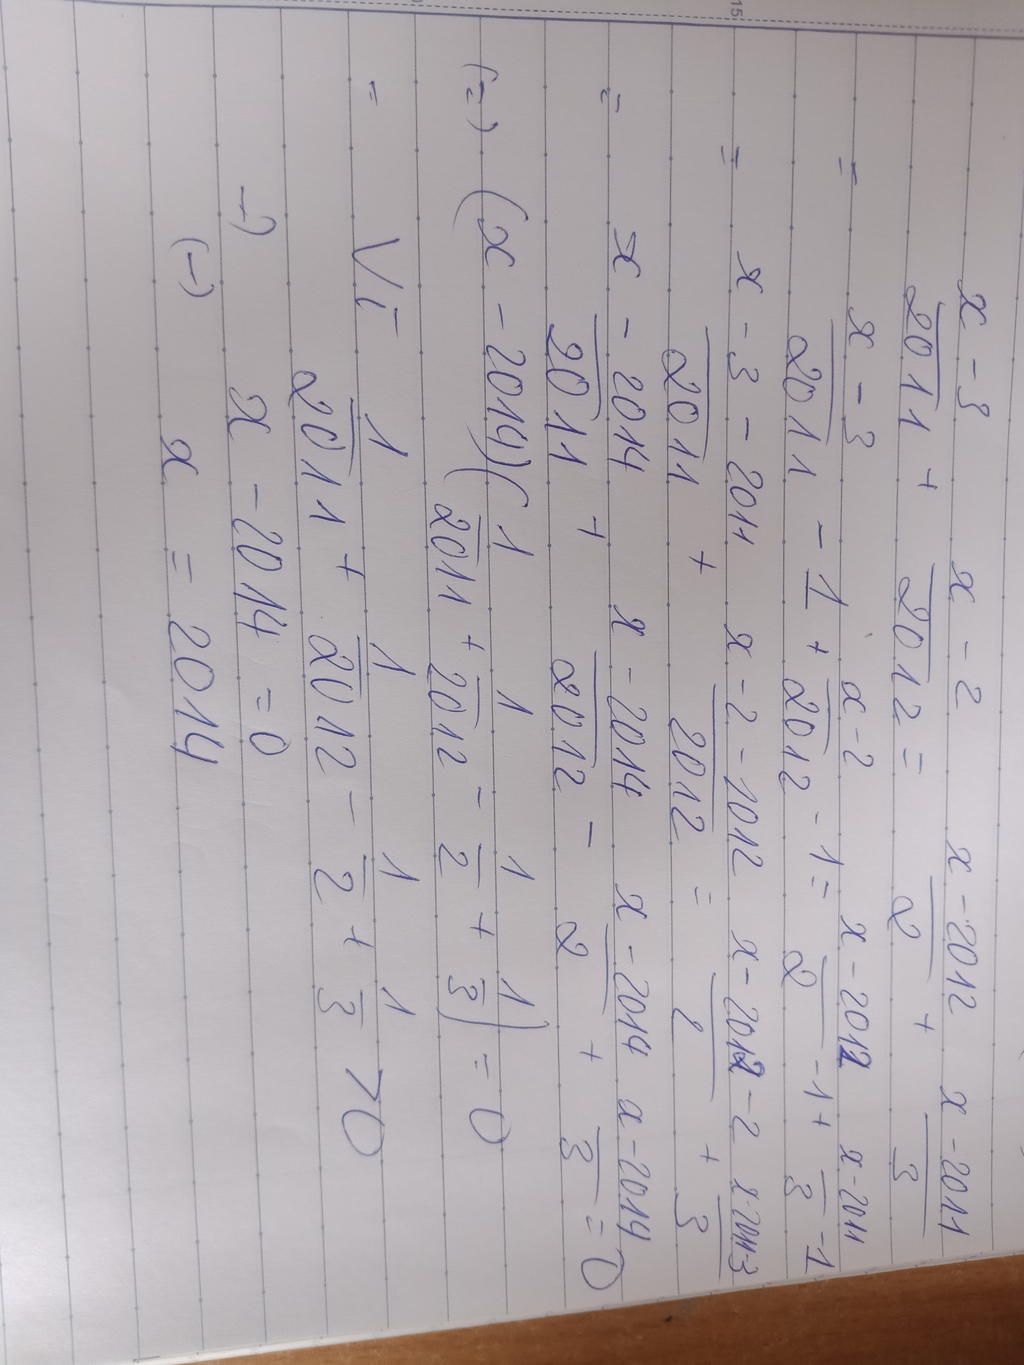 x - 3 / 2011 + x - 2 / 2012 = x - 2012 / 2 + x - 2011 / 3
= x - 3 / 2011 - 1 + x - 2 / 2012 - 1 = x - 2012 / 2 - 1 + x - 2011 / 3 - 1
= x - 3 - 2011 / 2011 + x - 2 - 1012 / 2012 = x - 2012 - 2 / 2 + x - 2011 - 3 / 3
= x - 2014 / 2011 + x - 2014 / 2012 - x - 2014 / 2 + x - 2014 / 3 = 0
(=) (x - 2014)(1 / 2011 + 1 / 2012 - 1 / 2 + 1 / 3) = 0
= Vì 1 / 2011 + 1 / 2012 - 1 / 2 + 1 / 3 > 0
-) x - 2014 = 0
(-) x = 2014
15